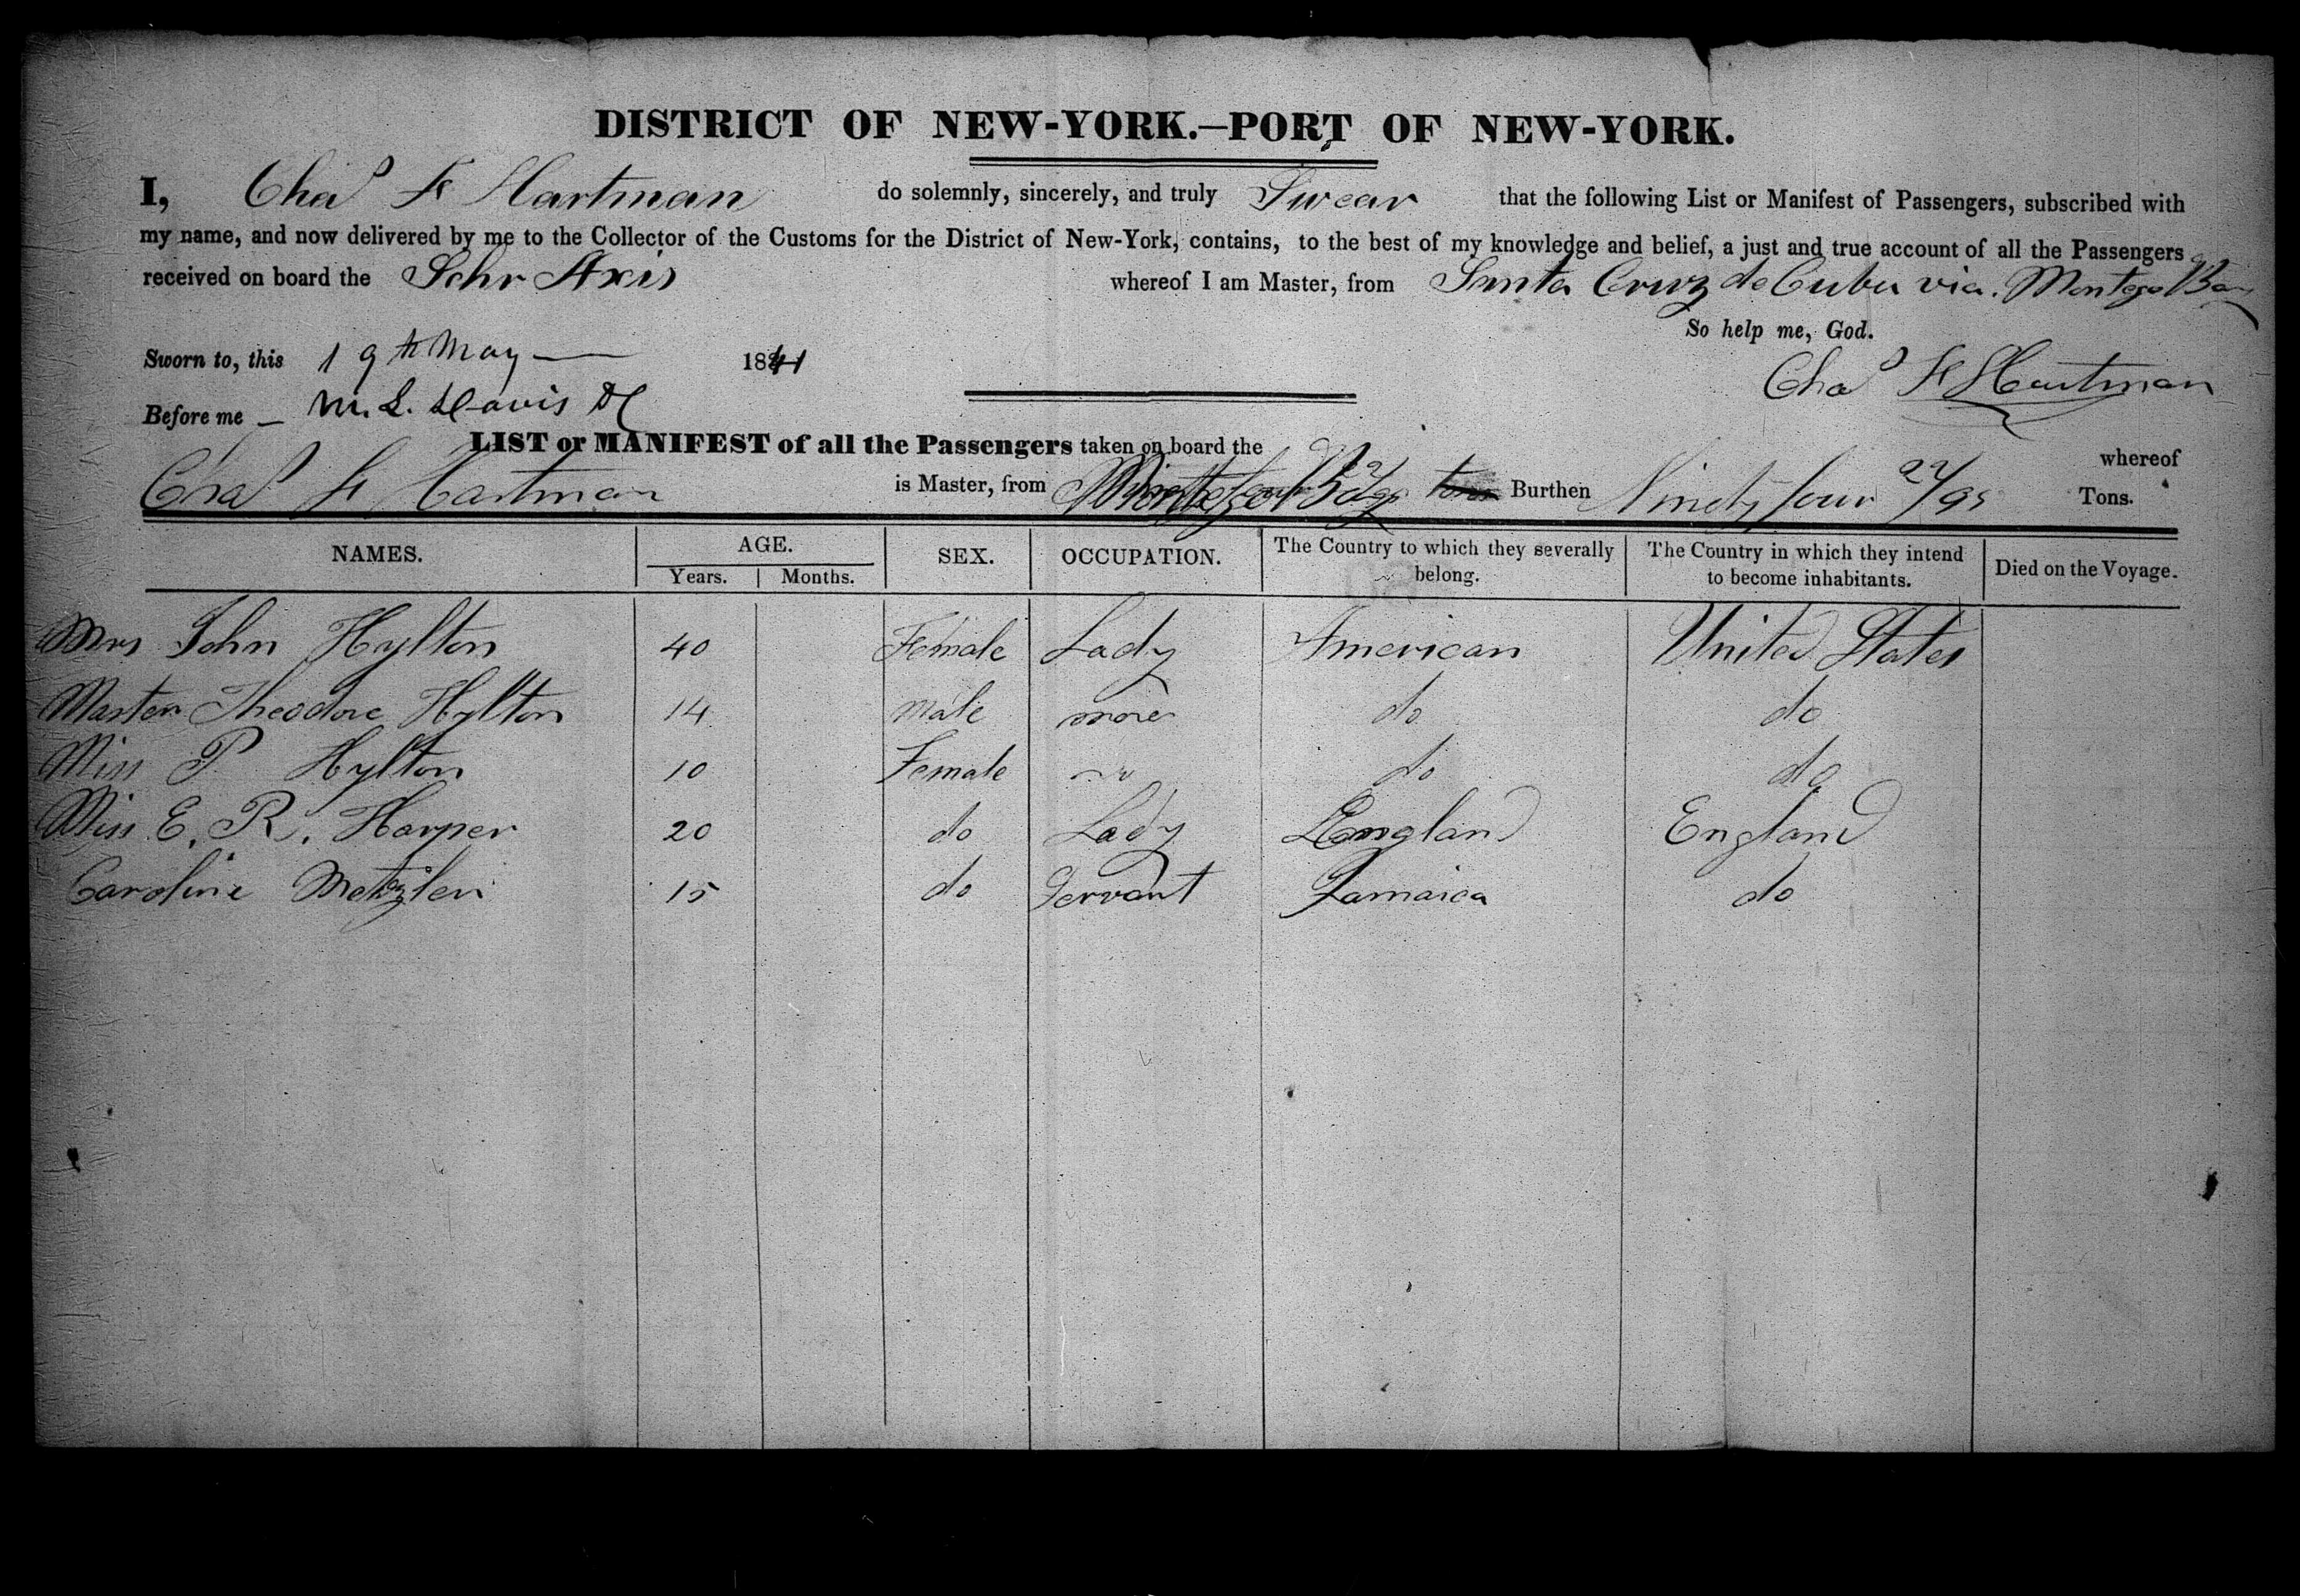 DISTRICT OF NEW-YORK.—PORT OF NEW-YORK.
I, Chas F Hartman do solemnly, sincerely, and truly Swear that the following List or Manifest of Passengers, subscribed with
my name, and now delivered by me to the Collector of the Customs for the District of New-York, contains, to the best of my knowledge and belief, a just and true account of all the Passengers
received on board the Schr Axis whereof I am Master, from Santa Cruz de Cuba via. Montego Bay
So help me, God.
Sworn to, this 19th May — 1841
Chas F Hartman
Before me — M. L. Davis
LIST or MANIFEST of all the Passengers taken on board the whereof
Chas F Hartman is Master, from Montego Bay Burthen Ninety four 22/95 Tons.
NAMES. AGE. SEX. OCCUPATION. The Country to which they severally belong. The Country in which they intend to become inhabitants. Died on the Voyage.
Years. Months.
Mrs John Hylton 40 Female Lady American United States
Master Theodore Hylton 14 male do do
Miss P. Hylton 10 Female do do
Miss E. R. Harper 20 do Lady England England
Caroline 15 do Servant Jamaica do